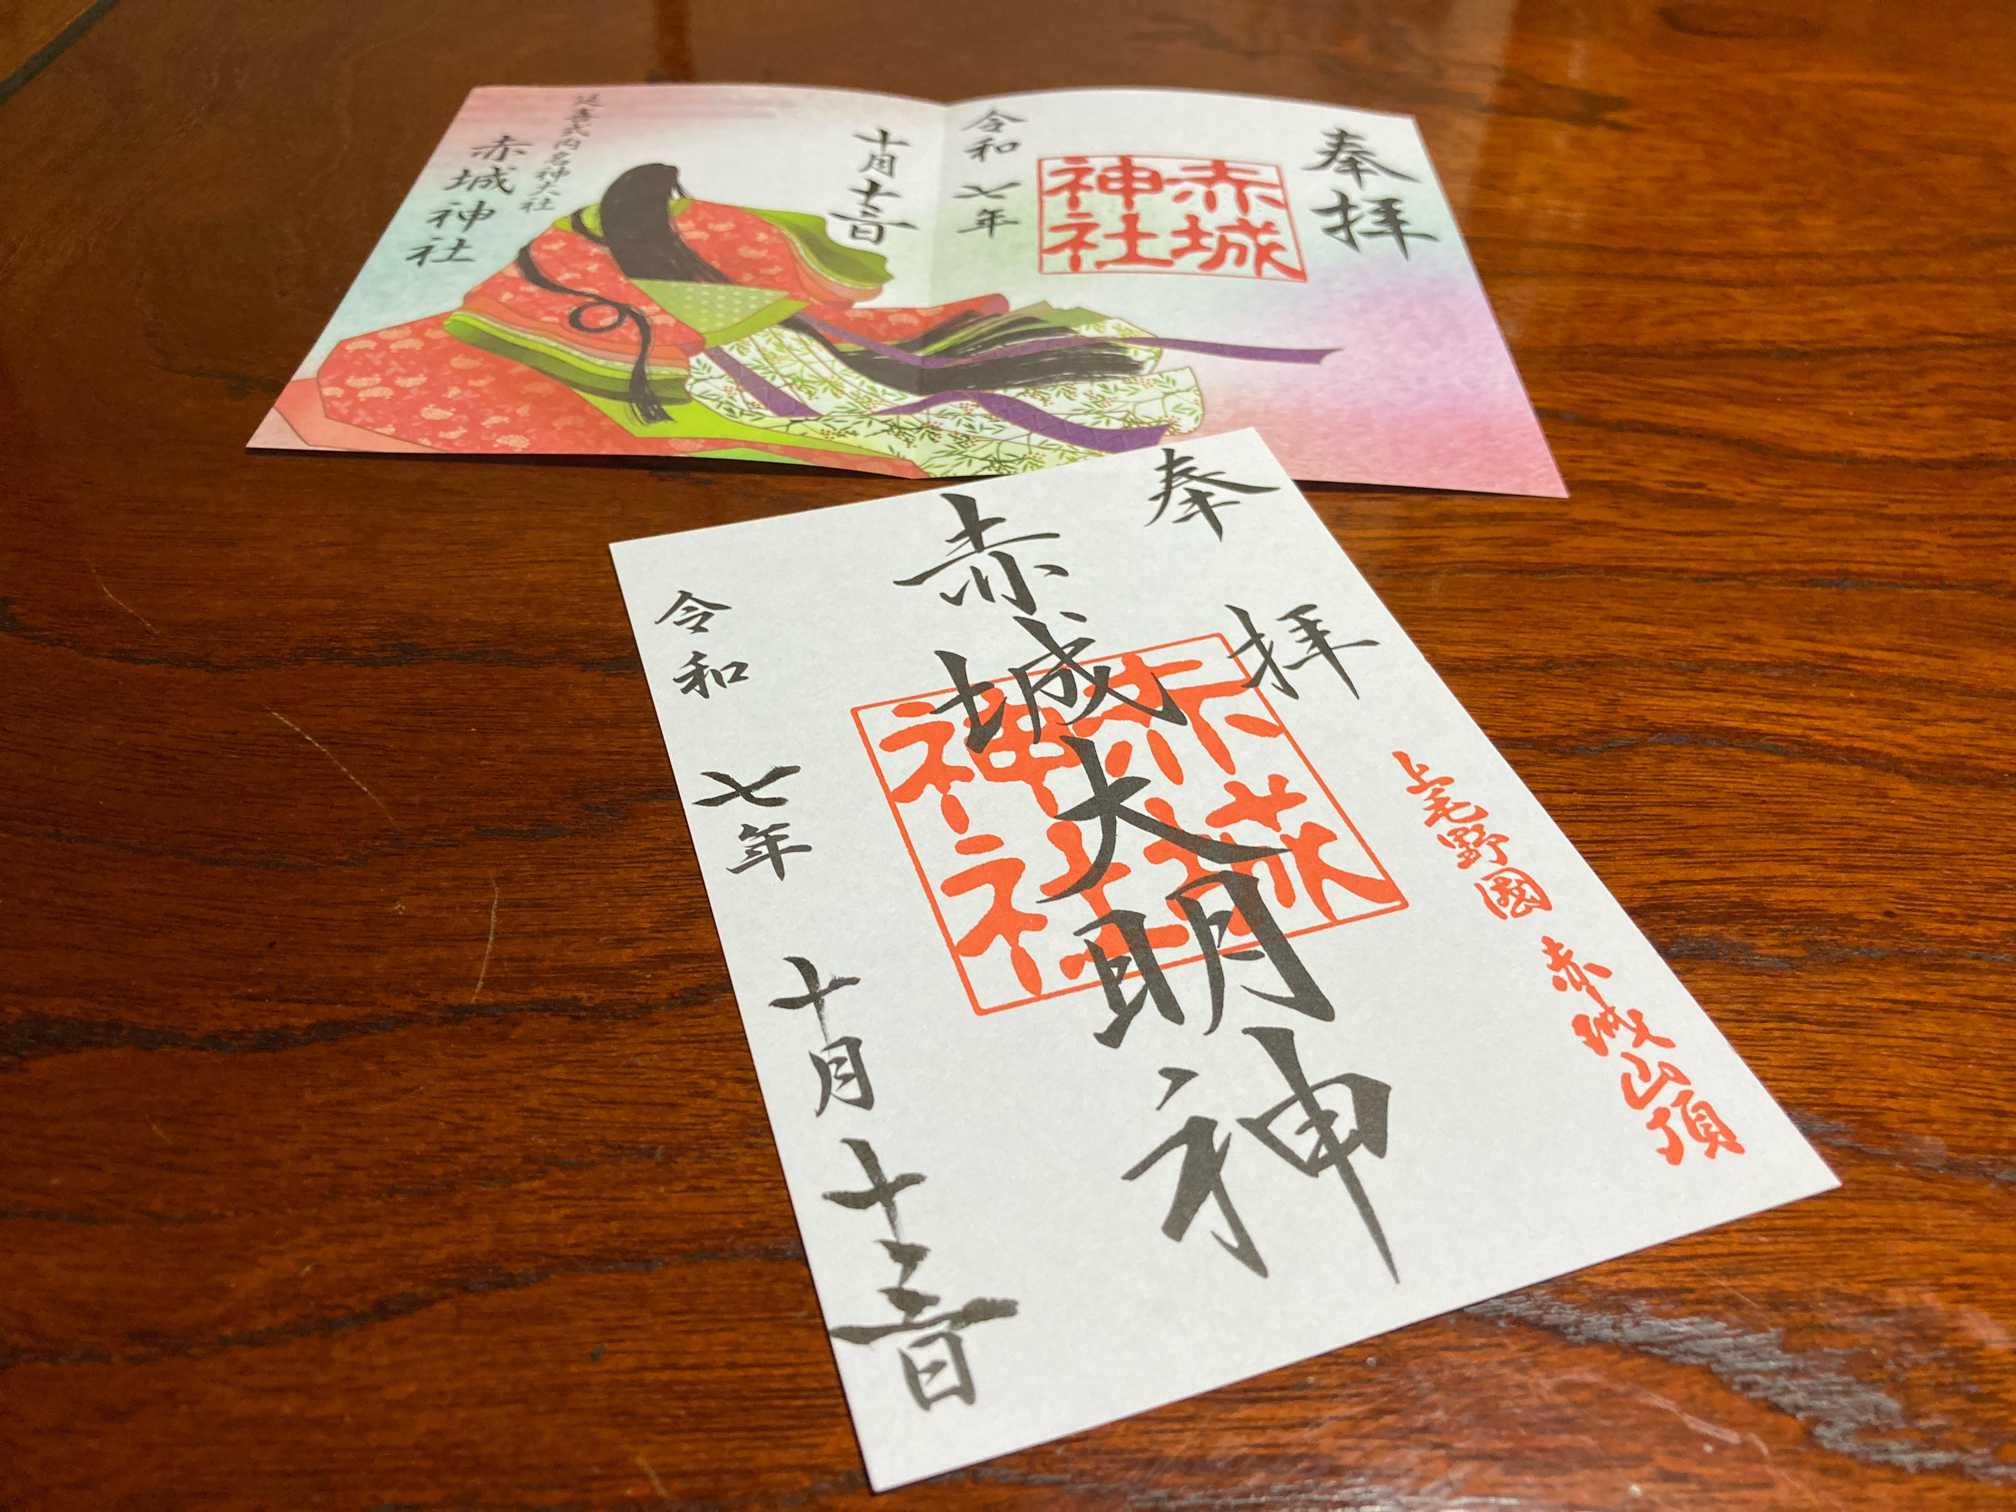 奉拝
赤城
神社
令和七年
十月十三日
延喜式内名神大社
赤城神社
奉拝
上毛野國 赤城山頂
赤城大明神
赤城
神社
令和七年十月十三日